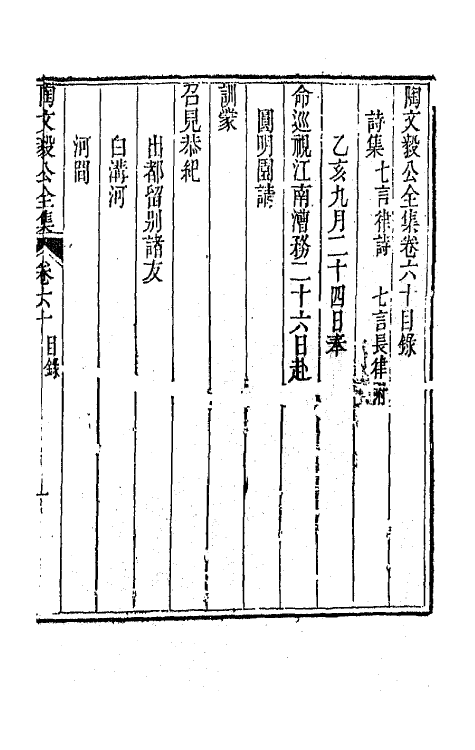 陶文毅公全集卷六十目錄
詩集　七言律詩　七言長律附
乙亥九月二十四日奉
命巡視江南漕務二十六日赴
圓明園請
訓蒙
召見恭紀
出都留別諸友
白溝河
河間
陶文毅公全集　卷六十　目錄